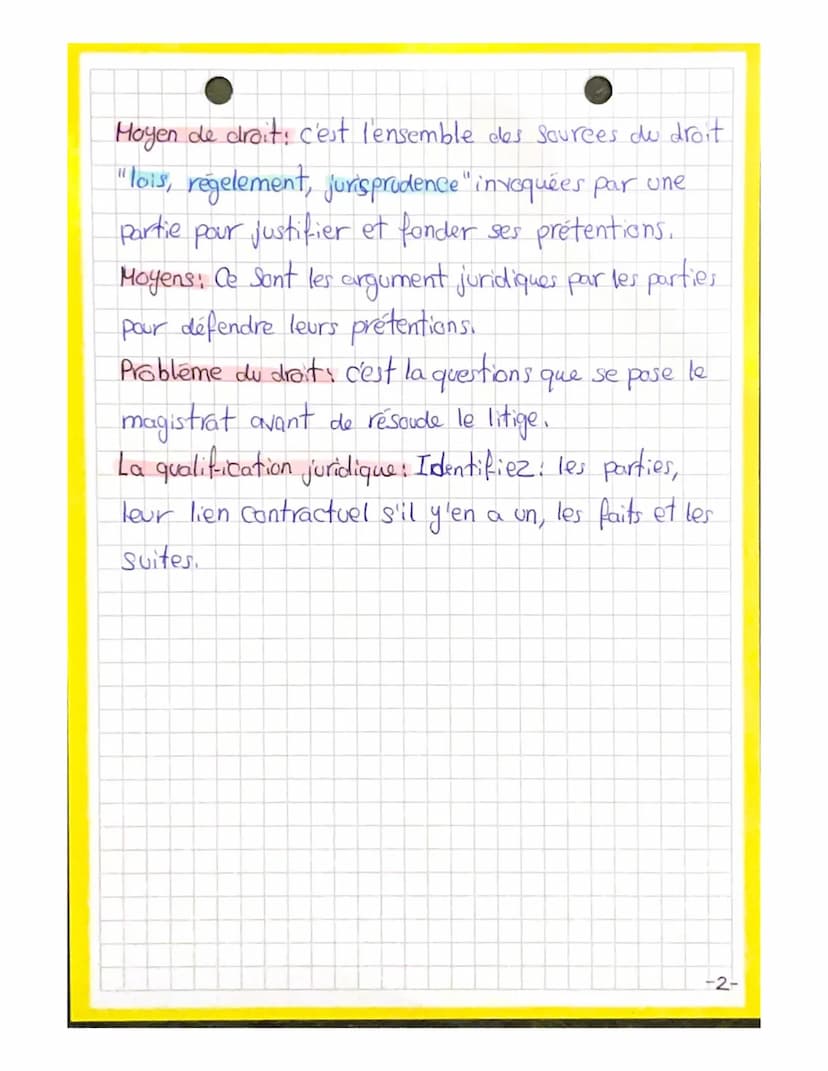 Moyen de droit: c'est l'ensemble des sources du droit
"lois, régelement, jurisprudence" invoquées par une
partie pour justifier et fonder ses prétentions.
Moyens: Ce sont les argument juridiques par les parties
pour défendre leurs prétentions.
Problème du droit: c'est la questions que se pose le
magistrat avant de résoude le litige.
La qualification juridique: Identifiez: les parties,
leur lien contractuel s'il y'en a un, les faits et les
suites.
-2-